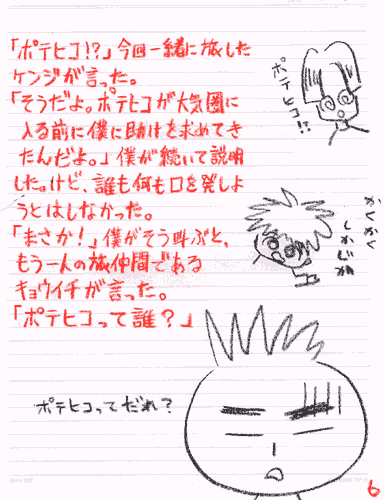 「ポテヒコ!?」今回一緒に旅した
ケンジが言った。
「そうだよ。ポテヒコが大気圏に
入る前に僕に助けを求めてき
たんだよ。」僕が続いて説明
した。けど、誰も何も口を発しよ
うとはしなかった。
「まさか!」僕がそう叫ぶと、
もう一人の旅仲間である
キョウイチが言った。
「ポテヒコって誰?」
ポテヒコ!?
かくかく
しかじか
ポテヒコってだれ?
6